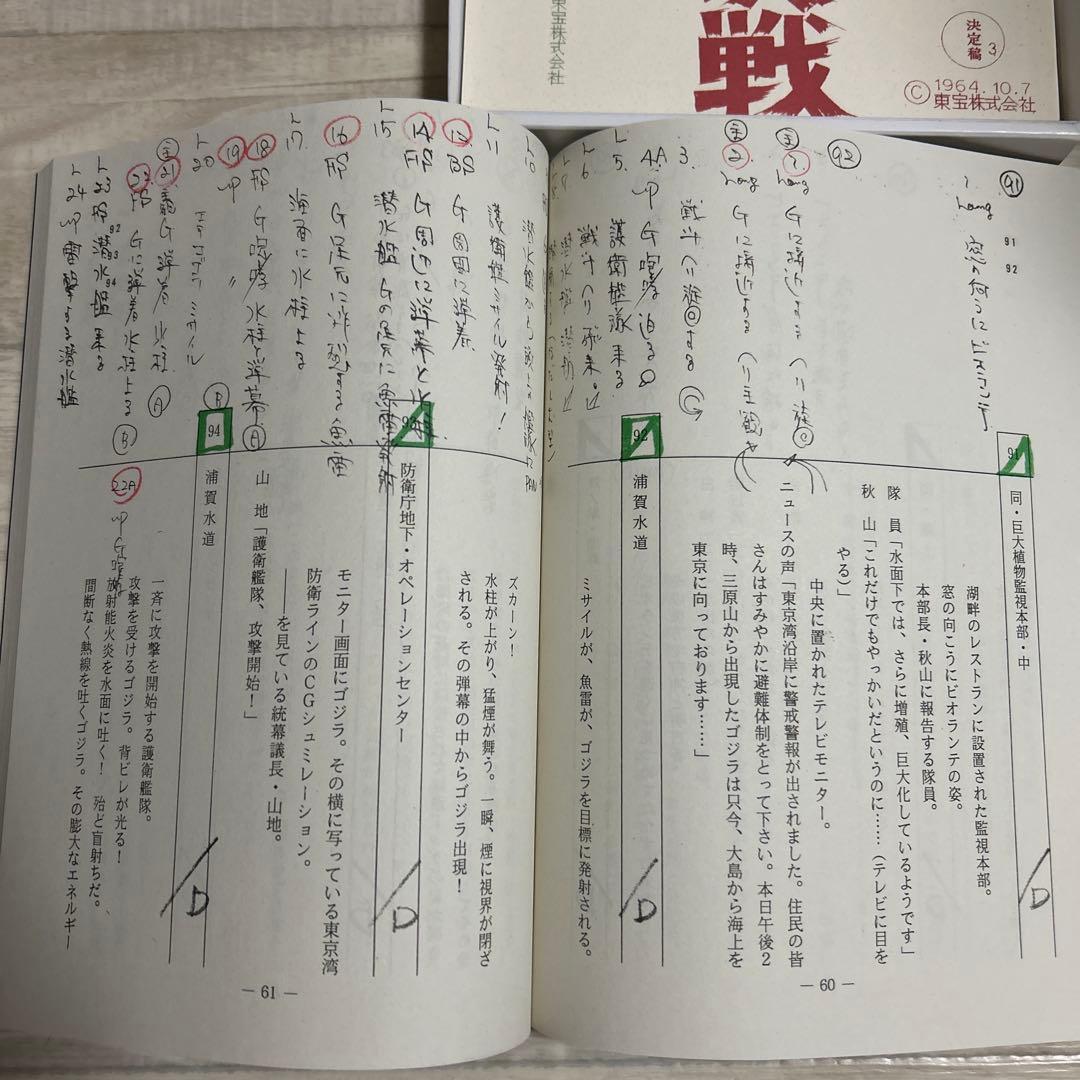 東宝株式会社
戦
決定稿
3
© 1964.10.7
東宝株式会社
91
91
92
1
窓の向うにビオランテ
92
1
Gに接近する ヘリ
2
Gに接近する ヘリ主観
3.
戦斗ヘリ旋回する
4A
UP G咆哮 迫る
5.
護衛艦隊 来る
6
戦斗ヘリ飛来。
10
11
護衛艦ミサイル発射!
BS G周囲に弾着
14
FS G周辺に弾幕と水柱
15
潜水艦 Gの足元に魚雷発射
16
FS G足元に炸裂する魚雷
17
海面に水柱上る
18
FS G咆哮 水柱と弾幕
A
19
UP 〃
20
ミサイル
B
21
G弾着 水柱
A
22
FS Gに弾着 水柱上る
B
23
FS 潜水艦 来る
92
93
94
24
UP 雷撃する潜水艦
22A
UP G咆哮
91
同・巨大植物監視本部・中
D
湖畔のレストランに設置された監視本部。
窓の向こうにビオランテの姿。
本部長・秋山に報告する隊員。
隊 員「水面下では、さらに増殖、巨大化しているようです」
秋 山「これだけでもやっかいだというのに……(テレビに目を
やる)」
中央に置かれたテレビモニター。
ニュースの声「東京湾沿岸に警戒警報が出されました。住民の皆
さんはすみやかに避難体制をとって下さい。本日午後2
時、三原山から出現したゴジラは只今、大島から海上を
東京に向っております……」
92
浦賀水道
D
ミサイルが、魚雷が、ゴジラを目標に発射される。
— 60 —
ズカーン!
水柱が上がり、猛煙が舞う。一瞬、煙に視界が閉ざ
される。その弾幕の中からゴジラ出現!
93
防衛庁地下・オペレーションセンター
D
モニター画面にゴジラ。その横に写っている東京湾
防衛ラインのCGシュミレーション。
——を見ている統幕議長・山地。
山 地「護衛艦隊、攻撃開始!」
94
浦賀水道
D
一斉に攻撃を開始する護衛艦隊。
攻撃を受けるゴジラ。背ビレが光る!
放射能火炎を水面に吐く! 殆ど盲射ちだ。
間断なく熱線を吐くゴジラ。その膨大なエネルギー
— 61 —